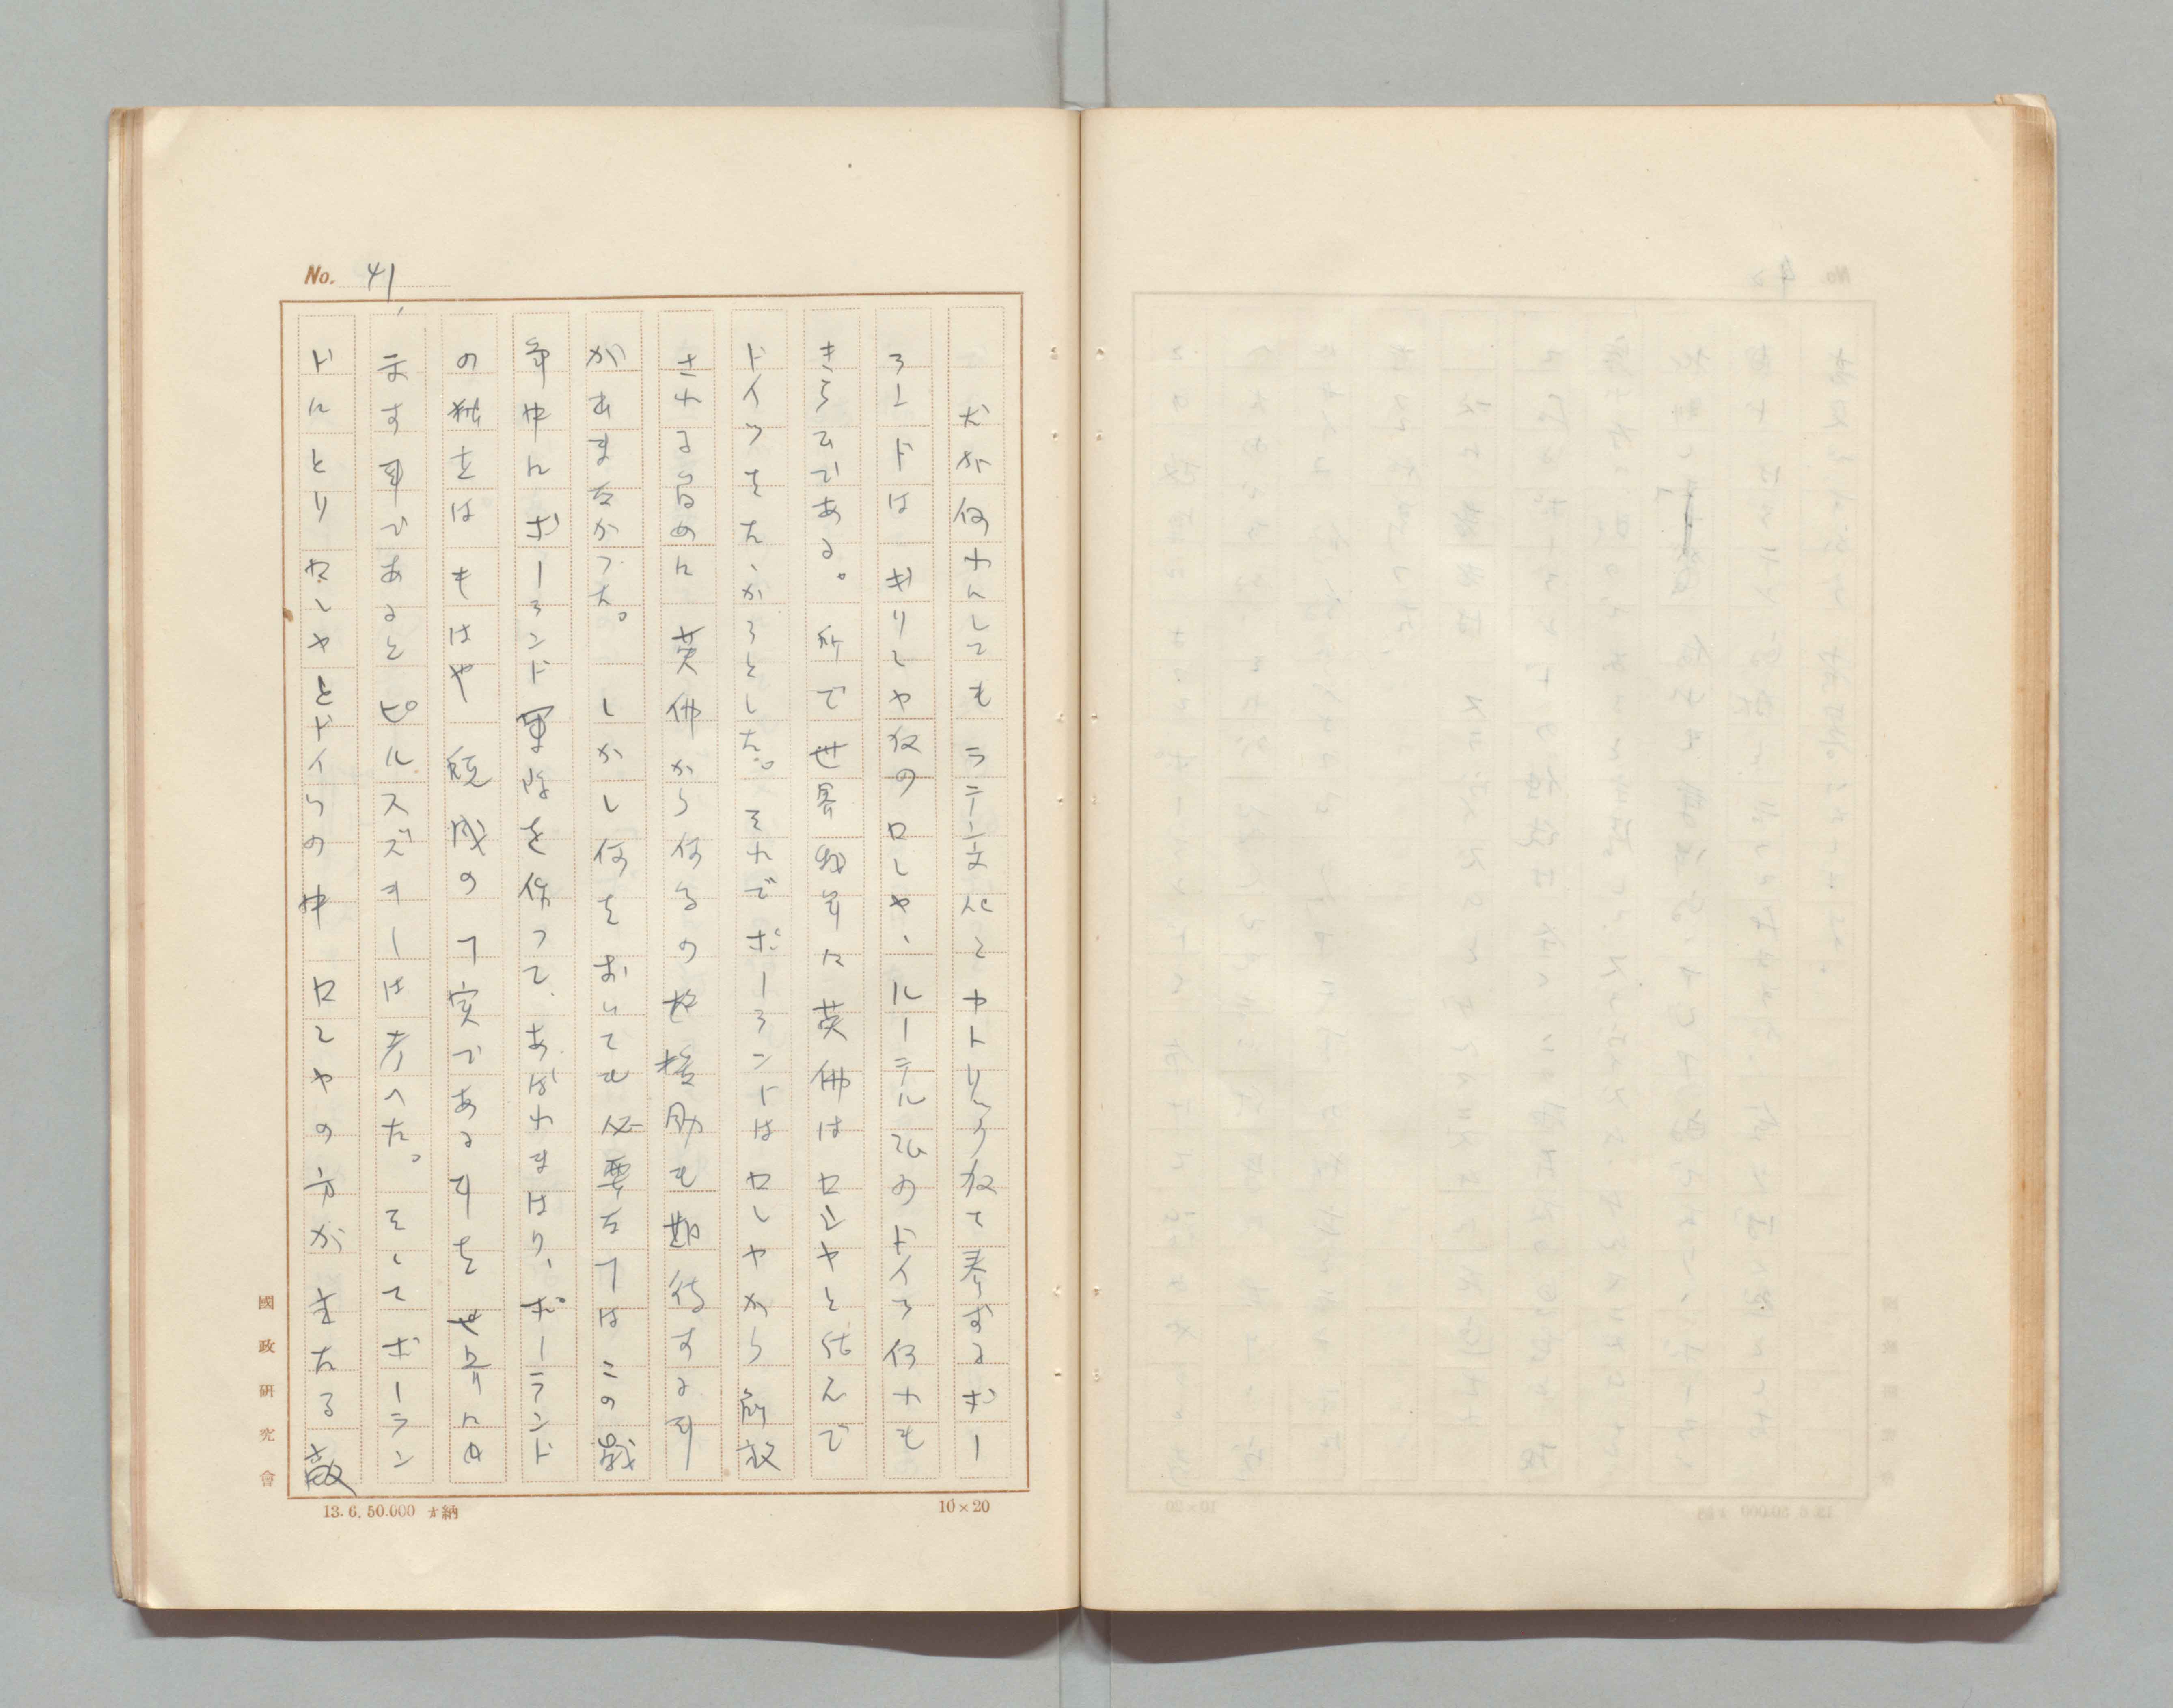 No. 41
だが何れにしてもラテン文化とカトリック教を奉ずるポー
ランドはギリシヤ教のロシヤ、ルーテル派のドイツ何れも
きらひである。所で世界戦争に英佛はロシヤと結んで
ドイツをたゝかうとした。それでポーランドはロシヤから解放
される為めに英佛から何等の援助も期待する事
が出来なかつた。しかし何をおいても必要なのはこの戦
争中にポーランド軍隊を作つて、あばれまはり、ポーランド
の独立はもはや既成の事実である事を世界に
示す事であるとピルスズキーは考へた。そしてポーラン
ドにとりロシヤとドイツの中ロシヤの方が主たる敵
國政研究會
13.6.50.000 納
10×20